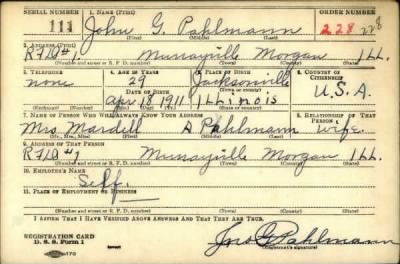 SERIAL NUMBER 1. NAME (Print) ORDER NUMBER
111 John G. Pahlmann 228 228
(First) (Middle) (Last)
2. ADDRESS (Print)
RFD #1 Murrayville Morgan ILL.
(Number and street or R. F. D. number) (Town) (County) (State)
3. TELEPHONE 4. AGE IN YEARS 5. PLACE OF BIRTH 6. COUNTRY OF CITIZENSHIP
none 29 Jacksonville
DATE OF BIRTH (Town or county)
Apr 18 1911 ILLinois U.S.A.
(Exchange) (Number) (Mo.) (Day) (Yr.) (State or country)
7. NAME OF PERSON WHO WILL ALWAYS KNOW YOUR ADDRESS 8. RELATIONSHIP OF THAT PERSON
Mrs Mardell A Pahlmann Wife.
(Mr., Mrs., Miss) (First) (Middle) (Last)
9. ADDRESS OF THAT PERSON
RFD #1 Murrayville Morgan ILL.
(Number and street or R. F. D. number) (Town) (County) (State)
10. EMPLOYER'S NAME
Self.
11. PLACE OF EMPLOYMENT OR BUSINESS
(Number and street or R. F. D. number) (Town) (County) (State)
I AFFIRM THAT I HAVE VERIFIED ABOVE ANSWERS AND THAT THEY ARE TRUE.
REGISTRATION CARD
D. S. S. Form 1 Jno G Pahlmann
(Registrant's signature)